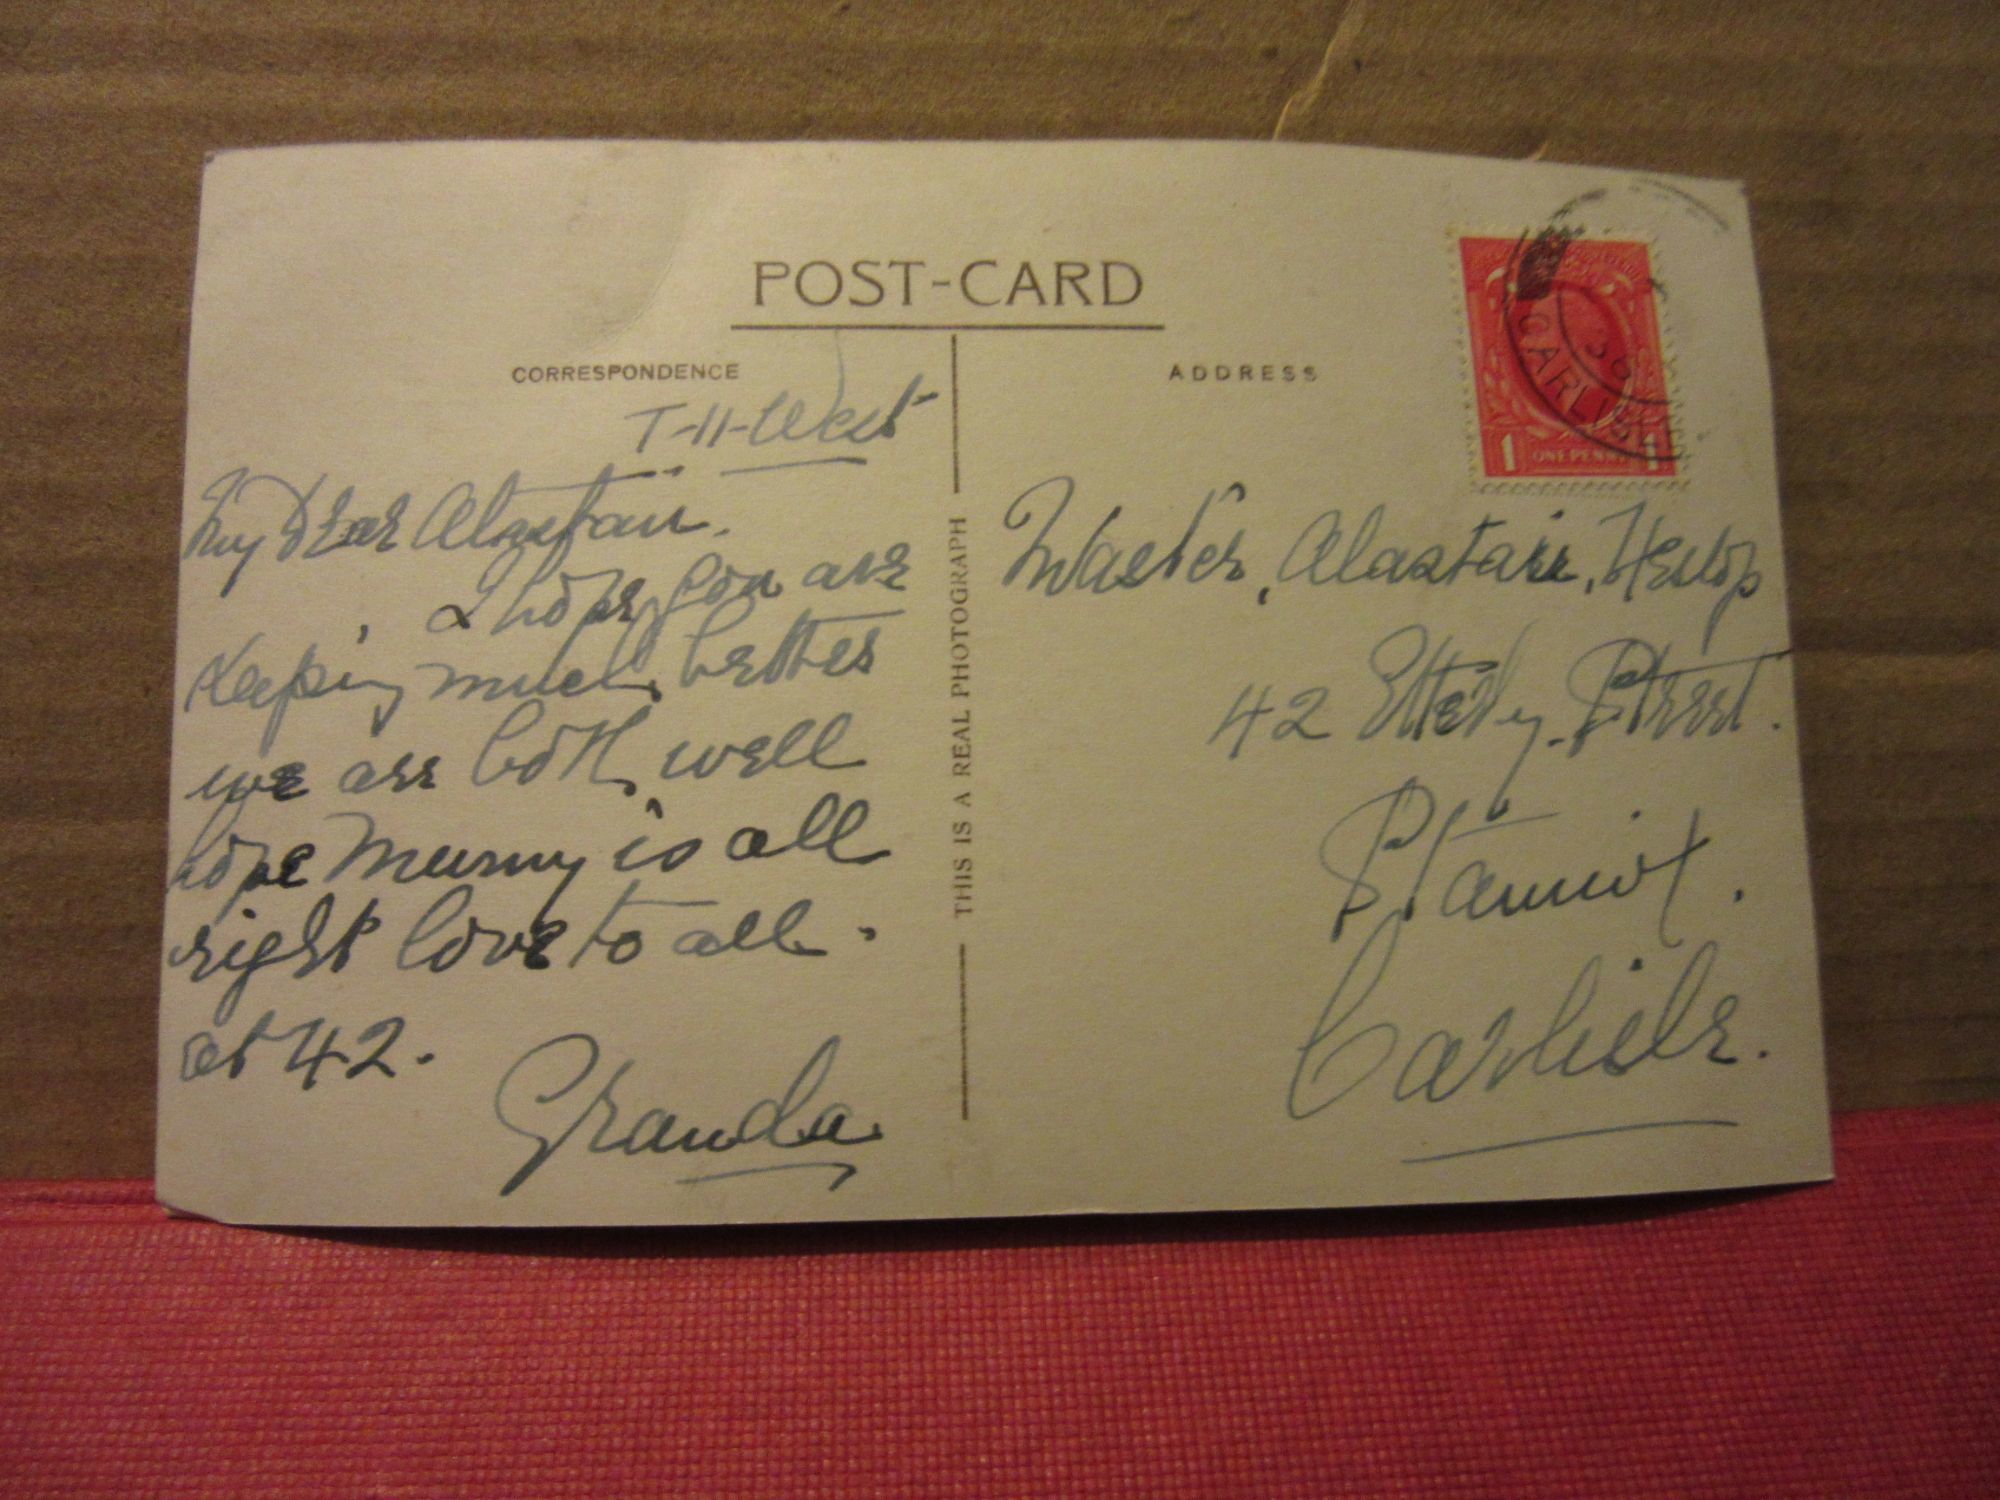 POST-CARD
CORRESPONDENCE
T-H-West
My Dear Alastair.
I hope you are
keeping much better
we are both well
hope Mumy is all
right love to all.
at 42.
Granda
THIS IS A REAL PHOTOGRAPH
ADDRESS
CARLISLE
36
1 ONE PENNY 1
Master, Alastair, Heslop
42 Etterby Street.
Stanwix.
Carlisle.